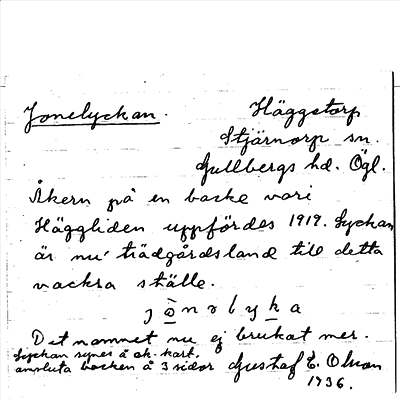 Jonelyckan.
Häggstorp
Stjärnorp sn.
Gullbergs hd. Ögl.
Åkern på en backe vari
Häggliden uppfördes 1919. Lyckan
är nu trädgårdsland till detta
vackra ställe.
j ò n ɷ l y k a
Detnamnet nu ej brukat mer.
Lyckan synes å ek. kart.
ansluta backen å 3 sidor Gustaf E. Olson
1936.